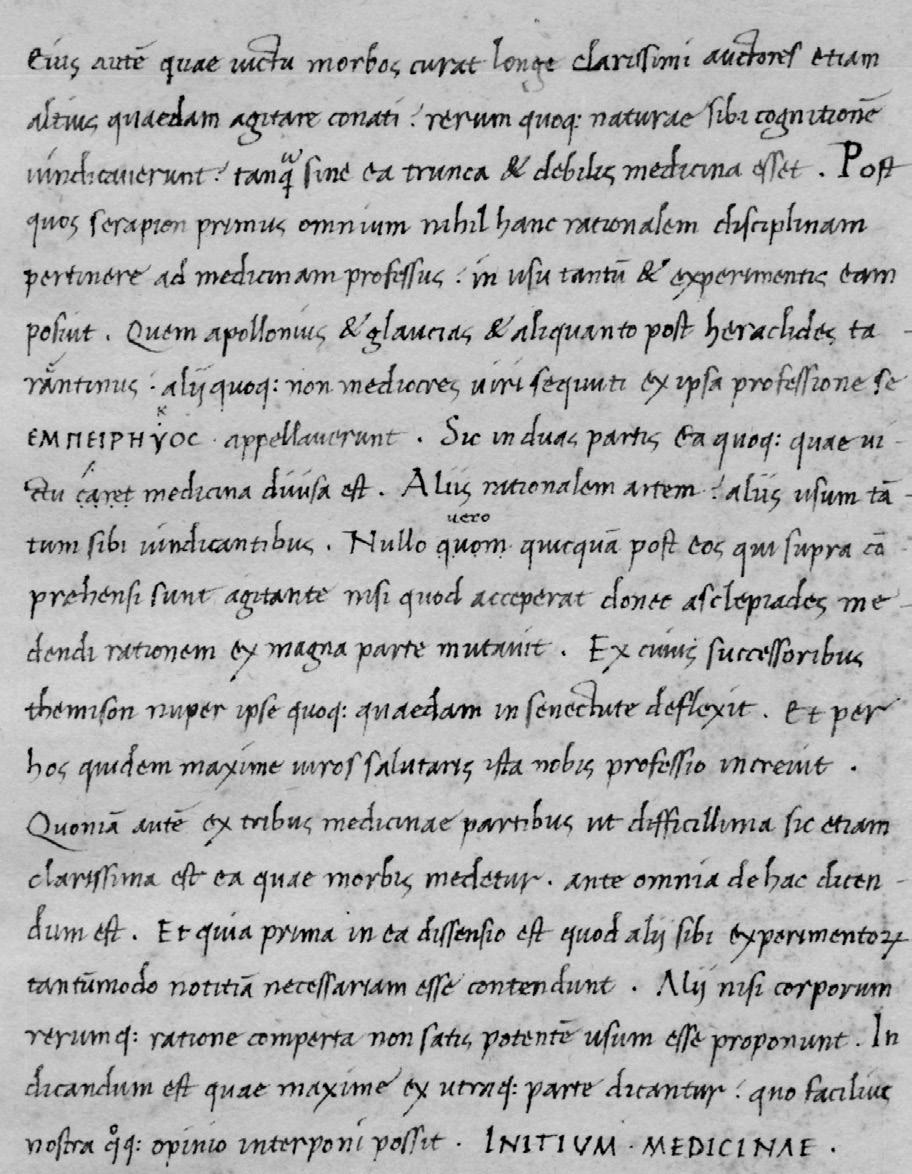 Eius autē quae uictu morbos curat longe clarissimi auctores etiam
altius quaedam agitare conati : rerum quoq: naturae sibi cognitionē
uindicauerunt : tanq̃ sine ea trunca & debilis medicina esset . Post
quos serapion primus omnium nihil hanc rationalem disciplinam
pertinere ad medicinam professus : in usu tantū & experimentis eam
posuit . Quem apollonius & glaucias & aliquanto post heraclides ta-
rantinus : alij quoq: non mediocres uiri sequuti ex ipsa professione se
ΕΜΠΕΙΡΗΥΟC appellauerunt . Sic in duas partis Ea quoq: quae ui-
ctu caret medicina diuisa est . Aliis rationalem artem : aliis usum tā-
uero
tum sibi uindicantibus . Nullo quom quicquā post eos qui supra cō-
prehensi sunt agitante nisi quod acceperat donec asclepiades me-
dendi rationem ex magna parte mutauit . Ex cuius successoribus
themison nuper ipse quoq: quaedam in senectute deflexit . Et per
hos quidem maxime uiros salutaris ista nobis professio increuit .
Quoniā autē ex tribus medicinae partibus ut difficillima sic etiam
clarissima est ea quae morbis medetur . ante omnia de hac dicen-
dum est . Et quia prima in ea dissensio est quod alij sibi experimentoꝝ
tantūmodo notitiā necessariam esse contendunt . Alij nisi corporum
rerumq: ratione comperta non satis potentē usum esse proponunt . In
dicandum est quae maxime ex utraq: parte dicantur : quo facilius
nostra qͦq: opinio interponi possit . INITIUM . MEDICINAE .